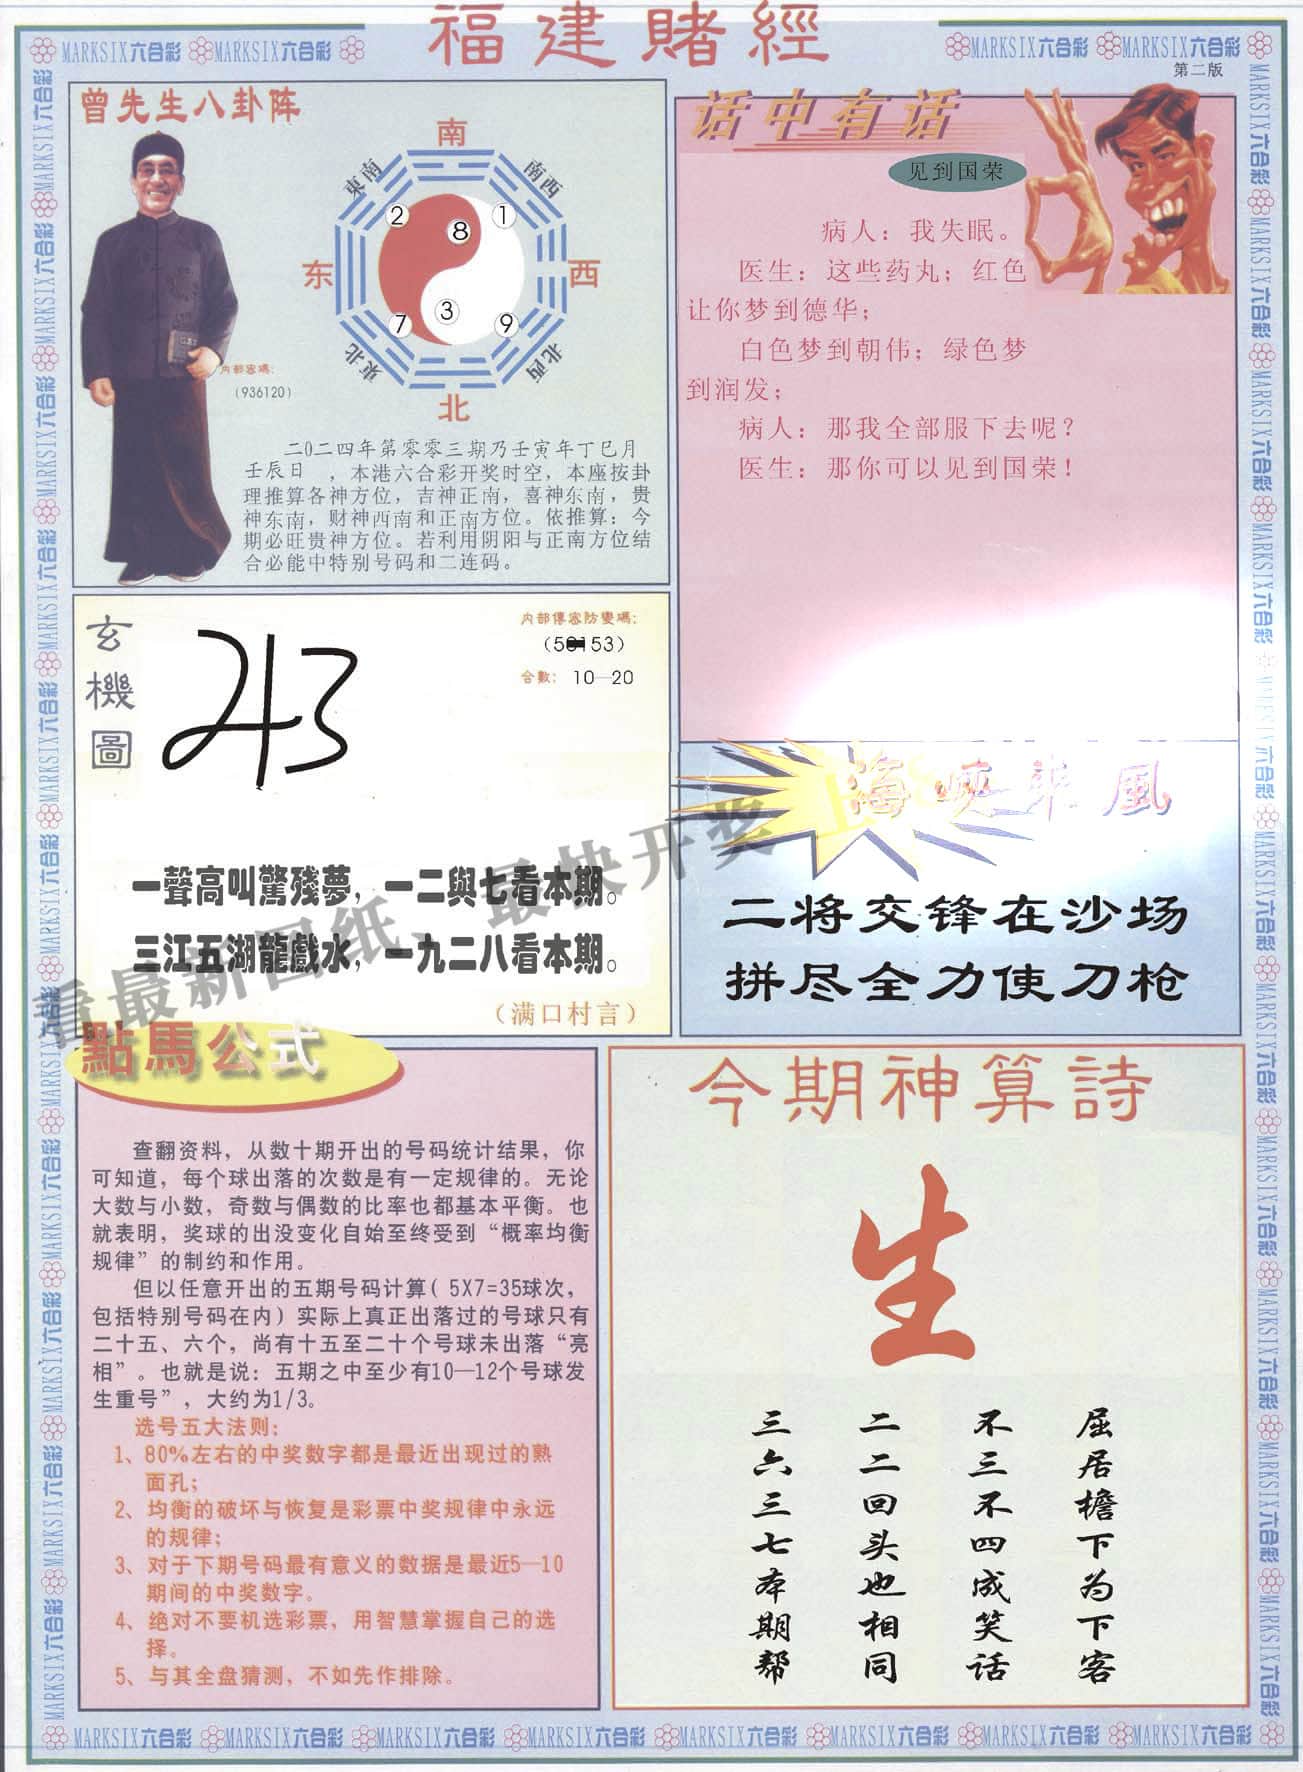 福建賭經
MARKSIX六合彩 MARKSIX六合彩
MARKSIX六合彩 MARKSIX六合彩
第二版
曾先生八卦阵
南
東南
南西
2
8
1
东
西
7
3
9
東北
北西
北
内部密碼:
(936120)
二0二四年第零零三期乃壬寅年丁巳月
壬辰日 ，本港六合彩开奖时空，本座按卦
理推算各神方位，吉神正南，喜神东南，贵
神东南，财神西南和正南方位。依推算：今
期必旺贵神方位。若利用阴阳与正南方位结
合必能中特别号码和二连码。
话中有话
见到国荣
病人：我失眠。
医生：这些药丸；红色
让你梦到德华；
白色梦到朝伟；绿色梦
到润发；
病人：那我全部服下去呢？
医生：那你可以见到国荣！
玄機圖
内部傳密防變碼:
153)
合數: 10—20
一聲高叫驚殘夢，一二與七看本期。
三江五湖龍戲水，一九二八看本期。
(满口村言)
看最新图纸、最快开奖
海峡来風
二将交锋在沙场
拼尽全力使刀枪
點馬公式
查翻资料，从数十期开出的号码统计结果，你
可知道，每个球出落的次数是有一定规律的。无论
大数与小数，奇数与偶数的比率也都基本平衡。也
就表明，奖球的出没变化自始至终受到“概率均衡
规律”的制约和作用。
但以任意开出的五期号码计算( 5X7=35球次，
包括特别号码在内）实际上真正出落过的号球只有
二十五、六个，尚有十五至二十个号球未出落“亮
相”。也就是说：五期之中至少有10—12个号球发
生重号”，大约为1/3。
选号五大法则：
1、80%左右的中奖数字都是最近出现过的熟
面孔；
2、均衡的破坏与恢复是彩票中奖规律中永远
的规律；
3、对于下期号码最有意义的数据是最近5—10
期间的中奖数字。
4、绝对不要机选彩票，用智慧掌握自己的选
择。
5、与其全盘猜测，不如先作排除。
今期神算詩
生
屈居檐下为下客
不三不四成笑话
二二回头也相同
三六三七本期帮
MARKSIX六合彩 MARKSIX六合彩 MARKSIX六合彩 MARKSIX六合彩 MARKSIX六合彩 MARKSIX六合彩 MARKSIX六合彩 MARKSIX六合彩